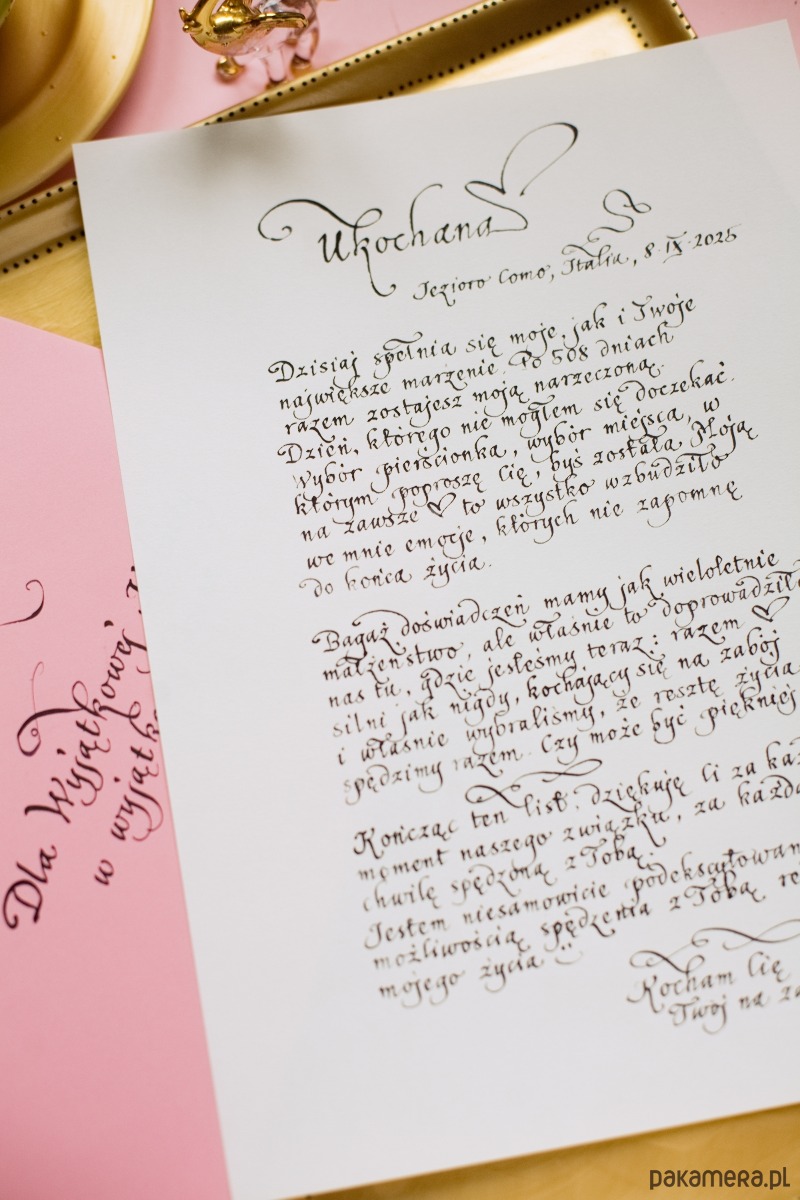 Ukochana
Jezioro Como, Italia, 8.IX.2025
Dzisiaj spełnia się moje, jak i Twoje
największe marzenie. Po 508 dniach
razem zostajesz moją narzeczoną.
Dzień, którego nie mogłem się doczekać.
Wybór pierścionka, wybór miejsca, w
którym poproszę Cię, byś została Moją
na zawsze ♡ to wszystko wzbudziło
we mnie emocje, których nie zapomnę
do końca życia.
Bagaż doświadczeń mamy jak wieloletnie
małżeństwo, ale właśnie to doprowadziło
nas tu, gdzie jesteśmy teraz: razem ♡
silni jak nigdy, kochający się na zabój
i właśnie wybraliśmy, że resztę życia
spędzimy razem. Czy może być piękniej
Kończąc ten list: dziękuję Ci za każ
moment naszego związku, za każd
chwilę spędzoną z Tobą.
Jestem niesamowicie podekscytowan
możliwością spędzenia z Tobą re
mojego życia ☺
Kocham Cię
Twój na za
Dla Wyjątkowej
w wyjątk
pakamera.pl